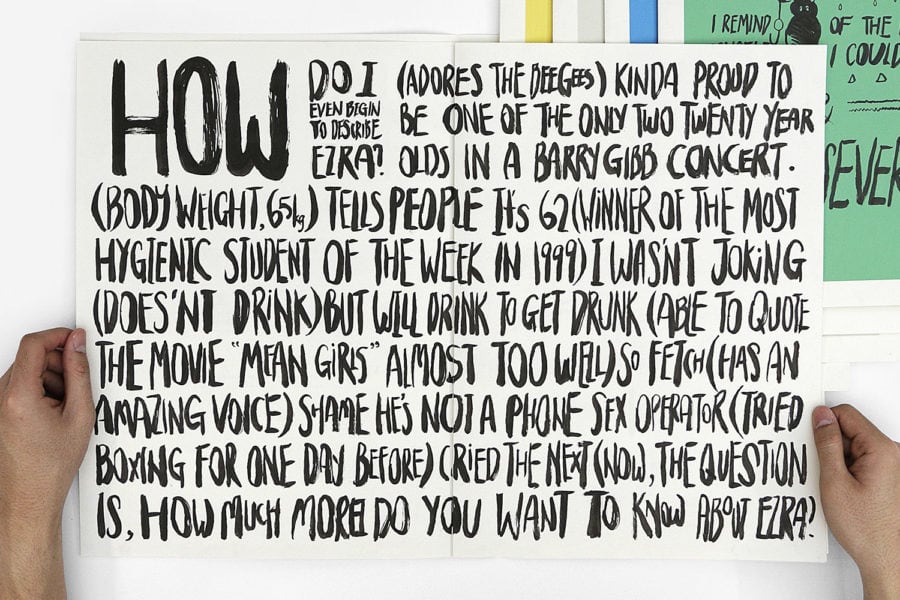 HOW
DO I
EVEN BEGIN
TO DESCRIBE
EZRA?
(ADORES THE BEEGEES) KINDA PROUD TO
BE ONE OF THE ONLY TWO TWENTY YEAR
OLDS IN A BARRY GIBB CONCERT.
(BODY WEIGHT, 65kg) TELLS PEOPLE It's 62 (WINNER OF THE MOST
HYGIENIC STUDENT OF THE WEEK IN 1999) I WAS'NT JOKiNG
(DOES'NT DRiNK) BUT WILL DRINK TO GET DRUNK (ABLE TO QUOTE
THE MOVIE "MEAN GiRlS" ALMOST TOO WELL) So FETCH (HAS AN
AMAZING VOICE) SHAME HE'S NOT A PHONE SEX OPERATOR (TRIED
BOXING FOR ONE DAY BEFORE) CRIED THE NEXT (NOW, THE QUESTION
IS, HOW MUCH MORE) DO YOU WANT TO KNOW ABOUT EZRA?
I REMIND OF THE
I COULD
&
SEVER